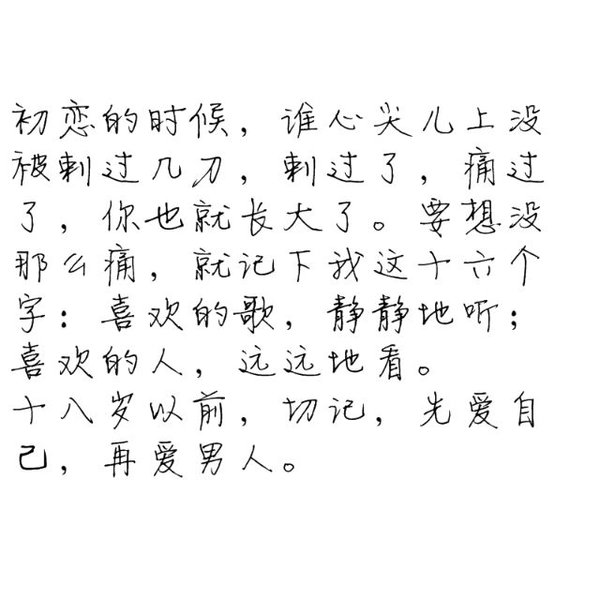 初恋的时候，谁心尖儿上没
被刺过几刀，刺过了，痛过
了，你也就长大了。要想没
那么痛，就记下我这十六个
字：喜欢的歌，静静地听；
喜欢的人，远远地看。
十八岁以前，切记，先爱自
己，再爱男人。